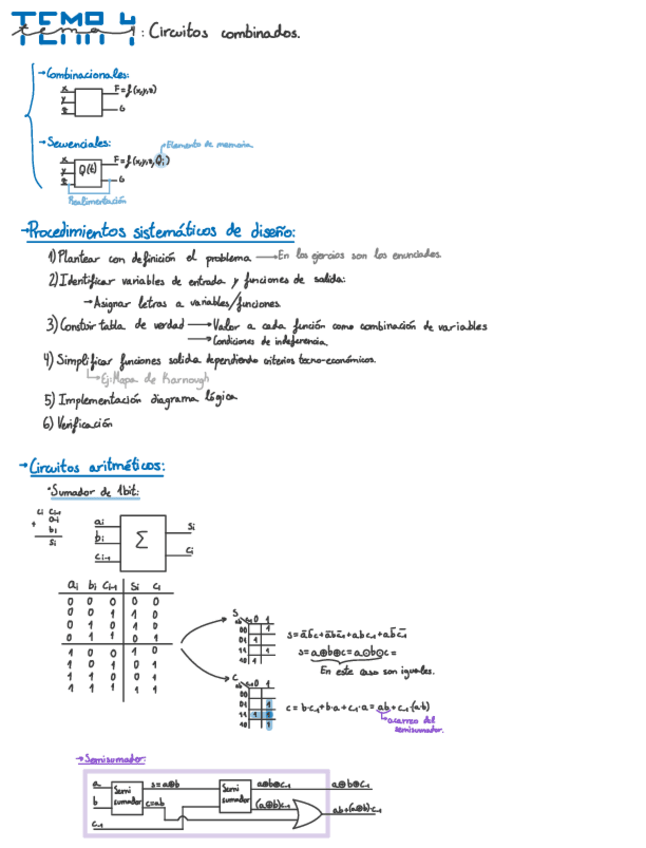 TEMA 4
tema 4: Circuitos combinados.
→Combinacionales:
x
y
z
F=f(x,y,z)
G
→Sewenciales:
Elemento de memoria
x
y
z
Q(t)
F=f(x,y,z,Qi)
G
Realimentación
→Procedimientos sistemáticos de diseño:
1) Plantear con definición el problema → En los ejercios son los enunciados.
2) Identificar variables de entrada y funciones de salida:
→Asignar letras a variables/funciones.
3) Constuir tabla de verdad → Valor a cada función como combinación de variables
→ Condiciones de indeferencia.
4) Simplificar funciones salida dependiendo criterios tecno-económicos.
→Ej: Mapa de Karnough
5) Implementación diagrama lógica
6) Verificación
→Circuitos aritméticos:
·Sumador de 1bit:
ci ci-1
+ ai
bi
si
ai
bi
ci-1
Σ
si
ci
ai bi ci-1 si ci
0 0 0 0 0
0 0 1 1 0
0 1 0 1 0
0 1 1 0 1
1 0 0 1 0
1 0 1 0 1
1 1 0 0 1
1 1 1 1 1
S
0 1
00 1
01 1
11 1
10 1
s=a̅b̅c+a̅bc̅₋₁+abc₋₁+ab̅c̅₋₁
s=a⊕b⊕c=a⊙b⊙c=
En este caso son iguales.
C
0 1
00
01 1
11 1 1
10 1
c=b·c₋₁+b·a+c₋₁·a=ab+c₋₁(a·b)
→acarreo del
semisumador.
→Semisumador:
a
b
c₋₁
Semi
sumador
s=a⊕b
c=ab
Semi
sumador
a⊕b⊕c₋₁
(a⊕b)c₋₁
a⊕b⊕c₋₁
ab+(a⊕b)·c₋₁